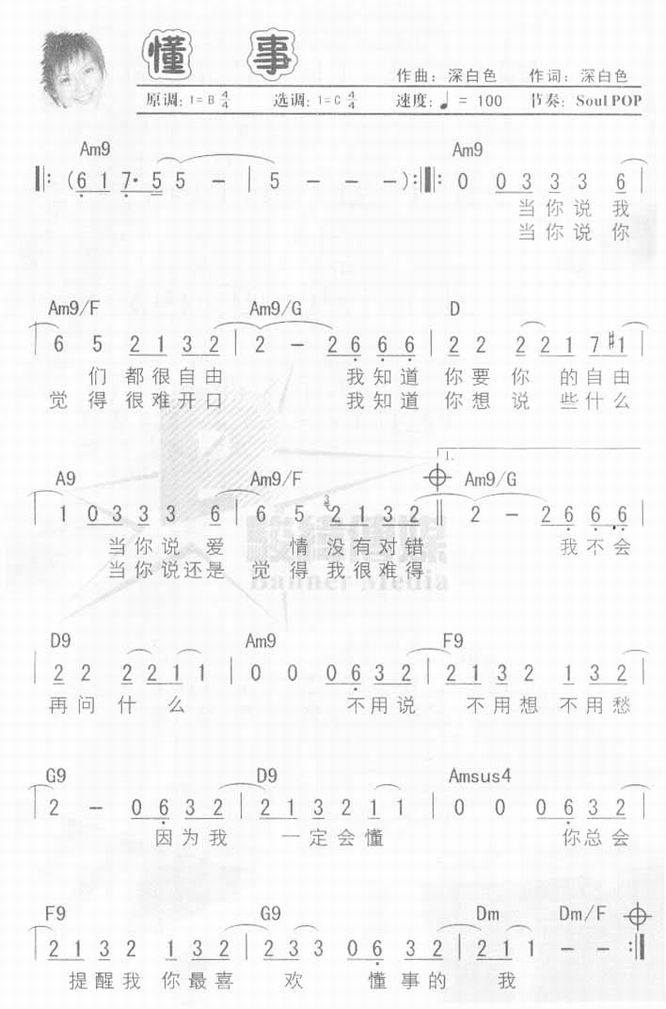 懂 事
作曲：深白色 作词：深白色
原调：1=B 4/4 选调：1=C 4/4 速度：♩= 100 节奏：Soul POP
Am9 Am9
‖: ( 6 1 7· 5 5 - | 5 - - - ) :‖: 0 0 3 3 3 6 |
当你说我
当你说你
Am9/F Am9/G D
6 5 2 1 3 2 | 2 - 2 6 6 6 | 2 2 2 2 1 7 #1 |
们都很自由 我知道 你要你的自由
觉得很难开口 我知道 你想说些什么
1.
A9 Am9/F Am9/G
1 0 3 3 3 6 | 6 5 2 1 3 2 ‖ 2 - 2 6 6 6 |
当你说爱 情没有对错 我不会
当你说还是 觉得我很难得
Banner Media
D9 Am9 F9
2 2 2 2 1 1 | 0 0 0 6 3 2 | 2 1 3 2 1 3 2 |
再问什么 不用说 不用想不用愁
G9 D9 Amsus4
2 - 0 6 3 2 | 2 1 3 2 1 1 | 0 0 0 6 3 2 |
因为我 一定会懂 你总会
F9 G9 Dm Dm/F
2 1 3 2 1 3 2 | 2 3 3 0 6 3 2 | 2 1 1 - - :‖
提醒我你最喜 欢 懂事的 我